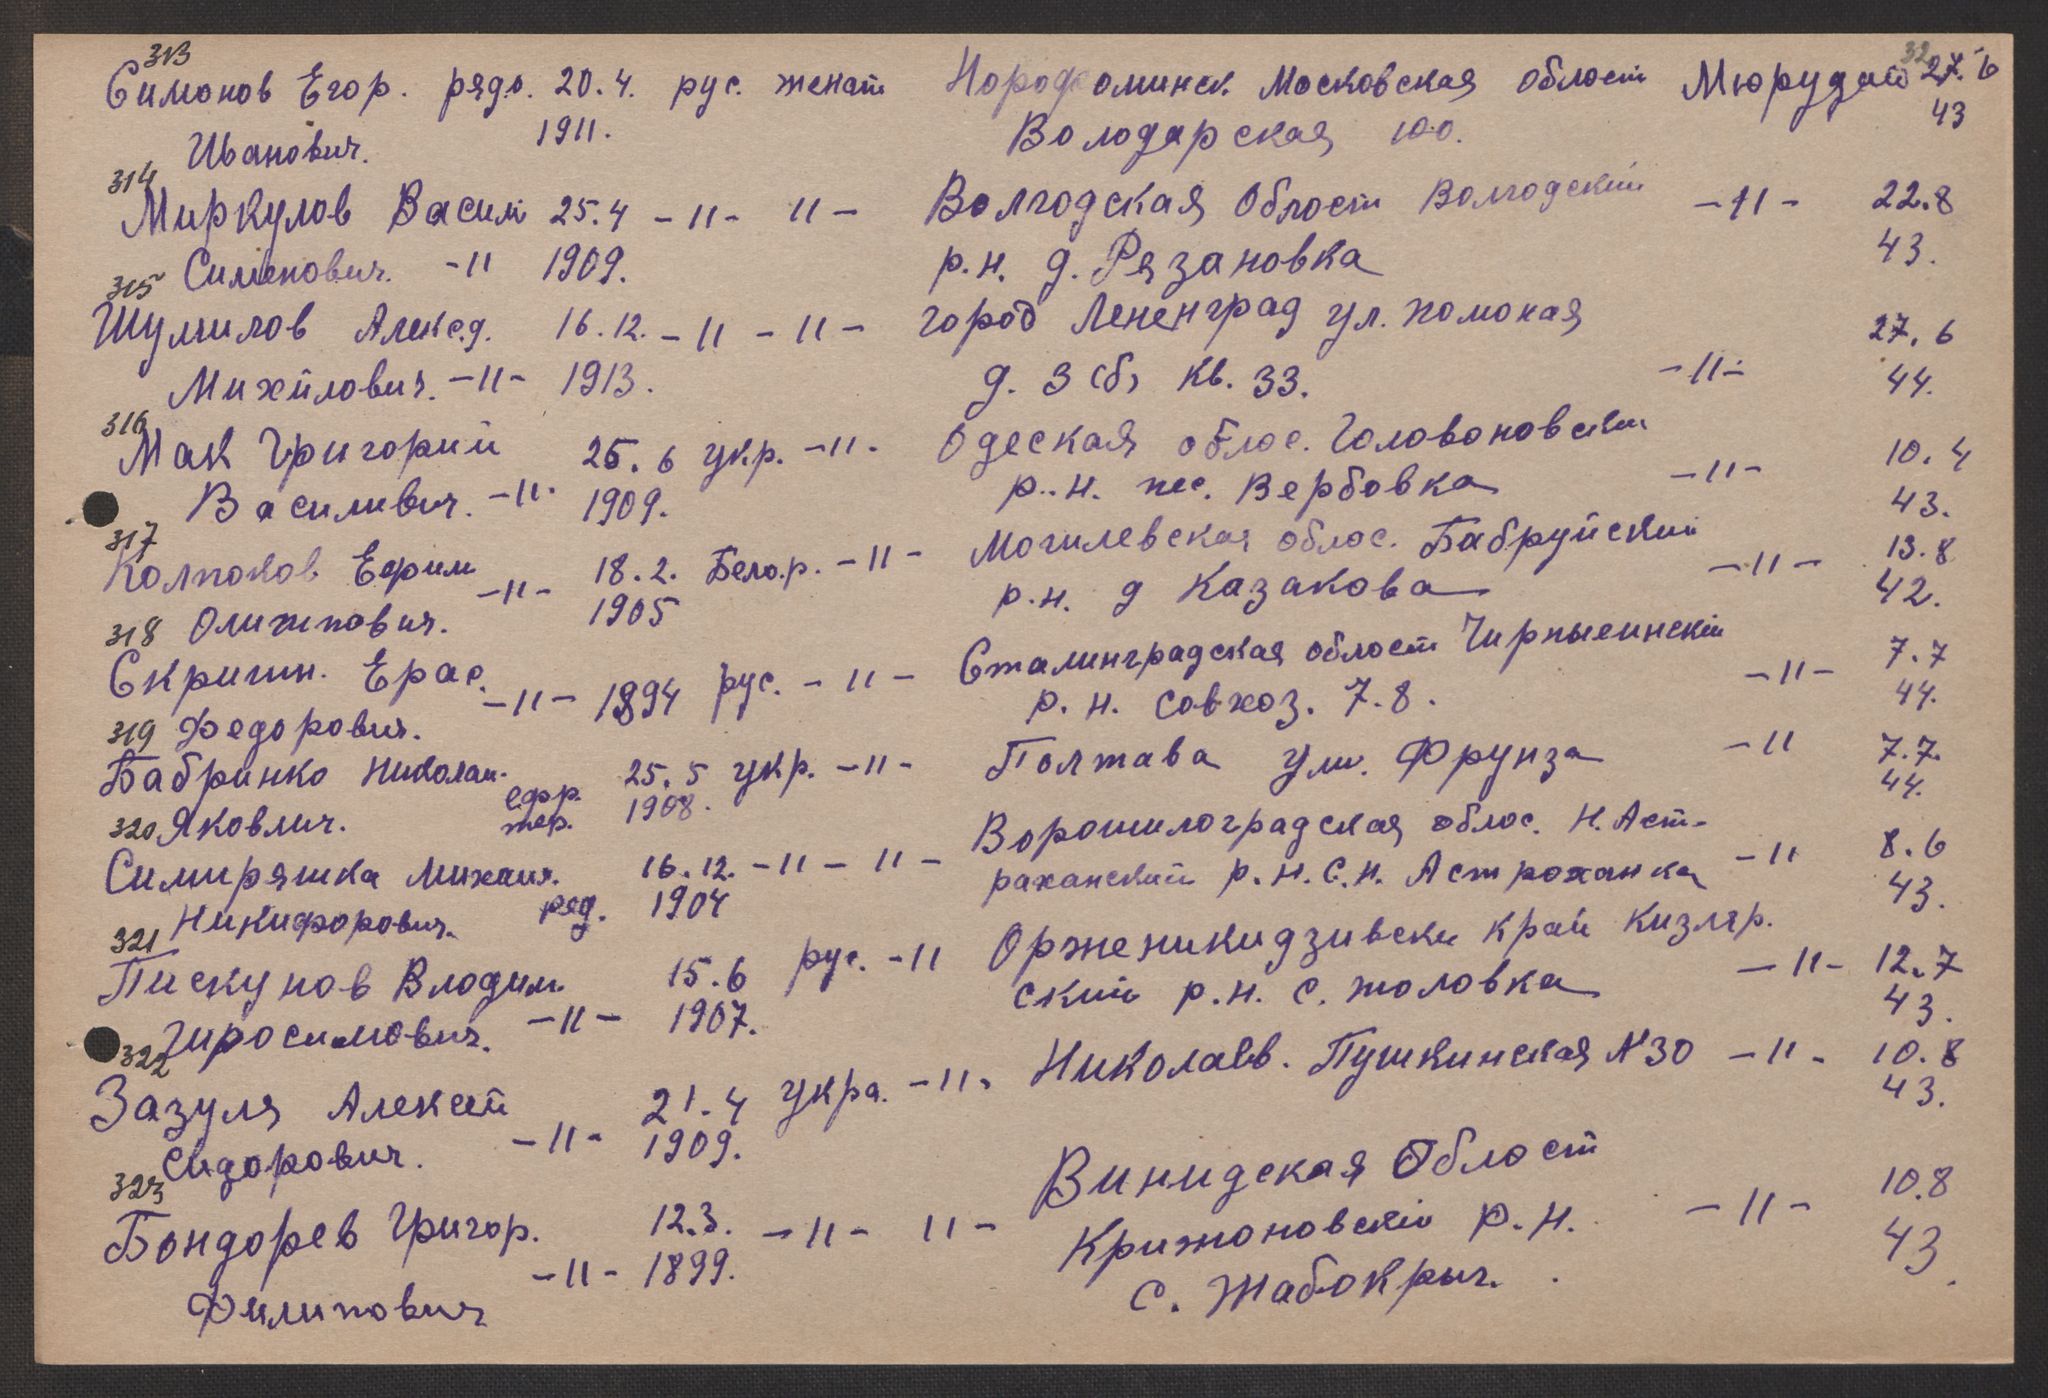 32
313
Симонов Егор. рядо. 20.4. рус. женат Нарофоминск Московская област Мюрудал 27.6
Иванович. 1911. Володарская 100. 43
314
Миркулов Васили 25.4 -11- 11- Волгодская Област Волгодский -11- 22.8
Сименович. -11 1909. р.н. д. Рязановка 43.
315
Шумилов Алексд. 16.12. -11 - 11- город Лененград ул. 27.6
Михйлович. -11- 1913. д. 3 кв. 33. -11- 44.
316
Мак Григорий 25.6 укр. -11- Одеская облос. Головоновский 10.4
Василивич. -11- 1909. р.н. пос. Вербовка -11- 43.
317
Колпоков Ефим -11- 18.2. Бело.р. -11- Могилевская облос. Бабруйский -11- 13.8
Олимпович. 1905 р.н. д Казакова 42.
318
Скрипин. Ерас. -11- 1894 рус. -11- Сталинградская област 7.7
Федорович. р.н. совхоз. 7.8. -11- 44.
319
Бабринко Николаи. 25.5 укр. -11- Полтава ули. Фрунза -11 7.7.
Яковлич. ефр. тер. 1908. 44.
320
Симиряшка Михаил. 16.12. -11- 11- Ворошилоградская облос. Н. Аст- -11 8.6
Никифорович. ряд. 1904 раханский р.н. с.н. Астроханка 43.
321
Пискунов Владим. 15.6 рус. -11 Орженикидзивски край Кизляр.
Гиросимович. -11- 1907. ский р.н. с. толовка -11- 12.7 43.
322
Зазуля Алексей 21.4 укра. -11- Николаев. Пушкинская N30 -11- 10.8
Сидорович. -11- 1909. 43.
323
Бондорев Григор. 12.3. -11- 11- Винидская Област 10.8
-11- 1899. Крижоновский р.н. -11- 43.
Филипович с. Жабокрич.